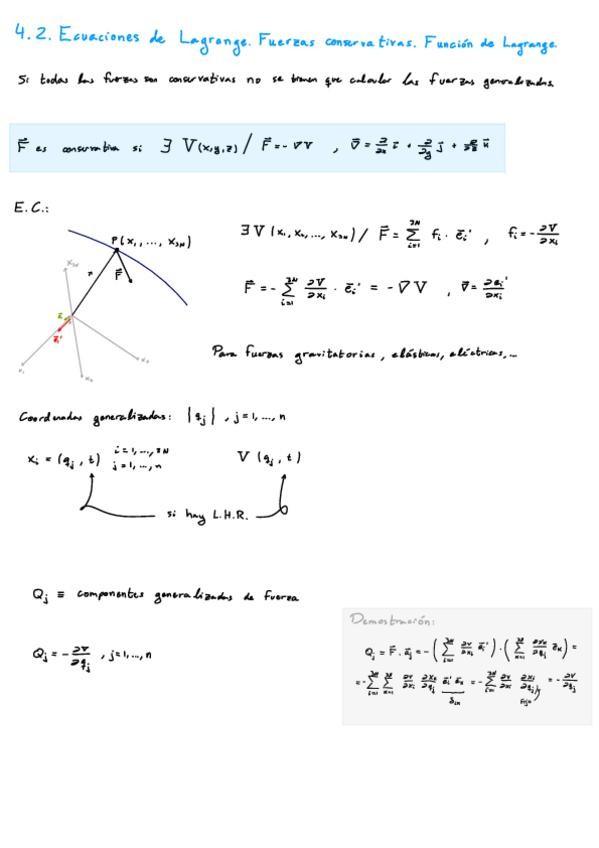 4.2. Ecuaciones de Lagrange. Fuerzas conservativas. Función de Lagrange.
Si todas las fuerzas son conservativas no se tienen que calcular las fuerzas generalizadas.
F⃗ es conservativa si ∃ V(x,y,z) / F⃗ = -∇V , ∇⃗ = ∂/∂x i⃗ + ∂/∂y j⃗ + ∂/∂z k⃗
E.C.:
P(x₁, ..., x₃ₙ)
∃ V (x₁, x₂, ..., x₃ₙ) / F⃗ = Σ_{i=1}^{3N} fᵢ · e⃗ᵢ' , fᵢ = -∂V/∂xᵢ
x₃ₙ
F⃗
F⃗ = - Σ_{i=1}^{3N} ∂V/∂xᵢ · e⃗ᵢ' = -∇V , ∇⃗ = ∂e⃗ᵢ'/∂xᵢ
e⃗ᵢ'
x₁
x₂
x₃
Para fuerzas gravitatorias, elásticas, eléctricas, ...
Coordenadas generalizadas: {qⱼ} , j=1, ..., n
xᵢ = (qⱼ, t) i=1, ..., 3N j=1, ..., n V (qⱼ, t)
si hay L.H.R.
Qⱼ ≡ componentes generalizadas de fuerza
Qⱼ = -∂V/∂qⱼ , j=1, ..., n
Demostración:
Qⱼ = F⃗ · a⃗ⱼ = -(Σ_{i=1}^{3N} ∂V/∂xᵢ e⃗ᵢ') · (Σ_{k=1}^{3N} ∂xₖ/∂qⱼ e⃗ₖ) =
= -Σ_{i=1}^{3N} Σ_{k=1}^{3N} ∂V/∂xᵢ ∂xₖ/∂qⱼ e⃗ᵢ' e⃗ₖ = -Σ_{i=1}^{3N} ∂V/∂xᵢ ∂xᵢ/∂qⱼ = -∂V/∂qⱼ
δᵢₖ